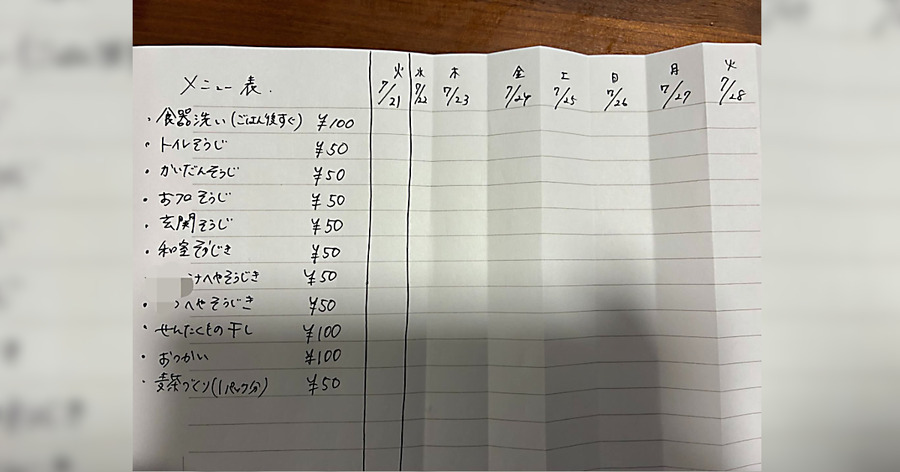 メニュー表.
火 水 木 金 土 日 月 火
7/21 7/22 7/23 7/24 7/25 7/26 7/27 7/28
・食器洗い(ごはん後すぐ) ¥100
・トイレそうじ ¥50
・かいだんそうじ ¥50
・おフロそうじ ¥50
・玄関そうじ ¥50
・和室そうじき ¥50
へやそうじき ¥50
・へやそうじき ¥50
・せんたくもの干し ¥100
・おつかい ¥100
・麦茶づくり(1パック分) ¥50